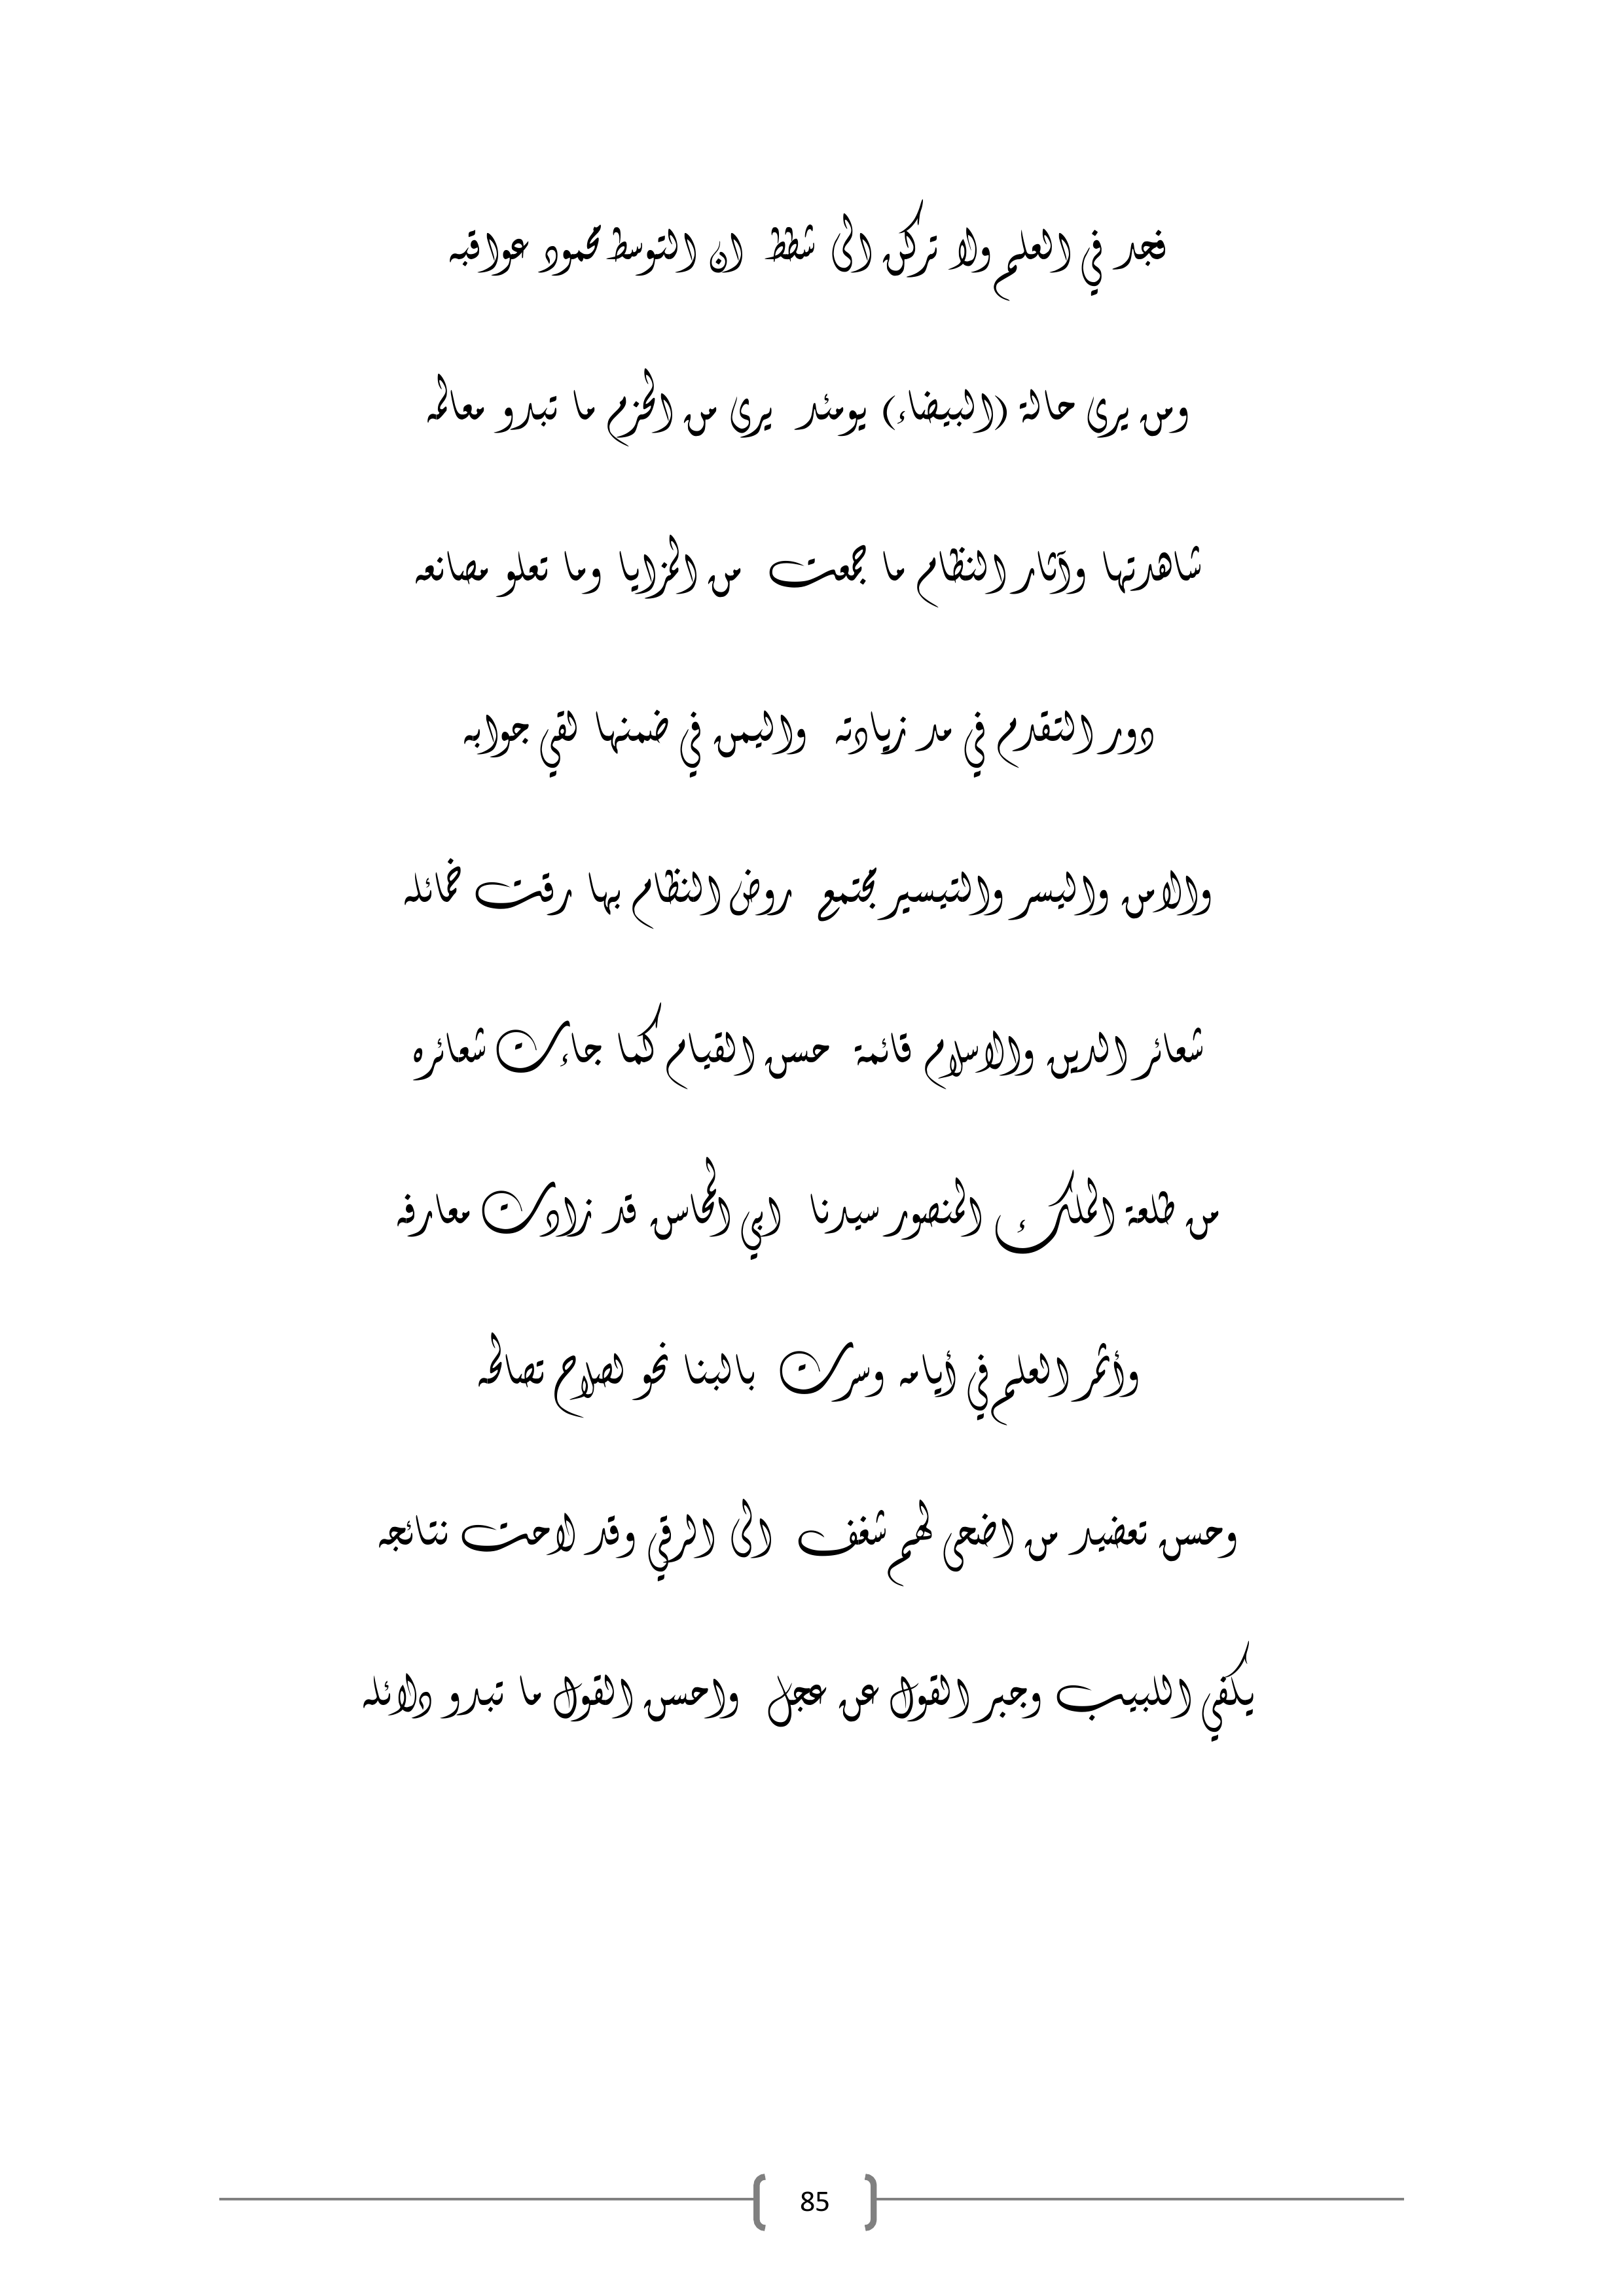 فجد في العلم ولا تركن الى شطط ان التوسط محمود عواقبه
ومن يرى حالة (البيضاء) يومئد يرى من الحزم ما تبدو معالمه
شاهدتها وآثار النظام ما جمعت من المزايا وما تعلو مصانعه
دور التقدم في مد زيادته واليمن في ضمنها لقي جوابه
والامن واليسر والتيسير مجتمع روض النظام بها رقت خمائله
شعائر الدين والاسلام قائمة حسن القيام كما جاءت شعائره
من طلعة الملك المنصور سيدنا ابي المحاسن قد زادت معارفه
وأثمر العلم في أيامه وسرت بالبنا نحو لصلاح تصالحه
وحسن تعضيد من اضحى لهم شغف الى الرقي وقد لاحت نتائجه
يكفي اللبيب وجبر القول عن عجل واحسن القول ما تبدو دلائله
85